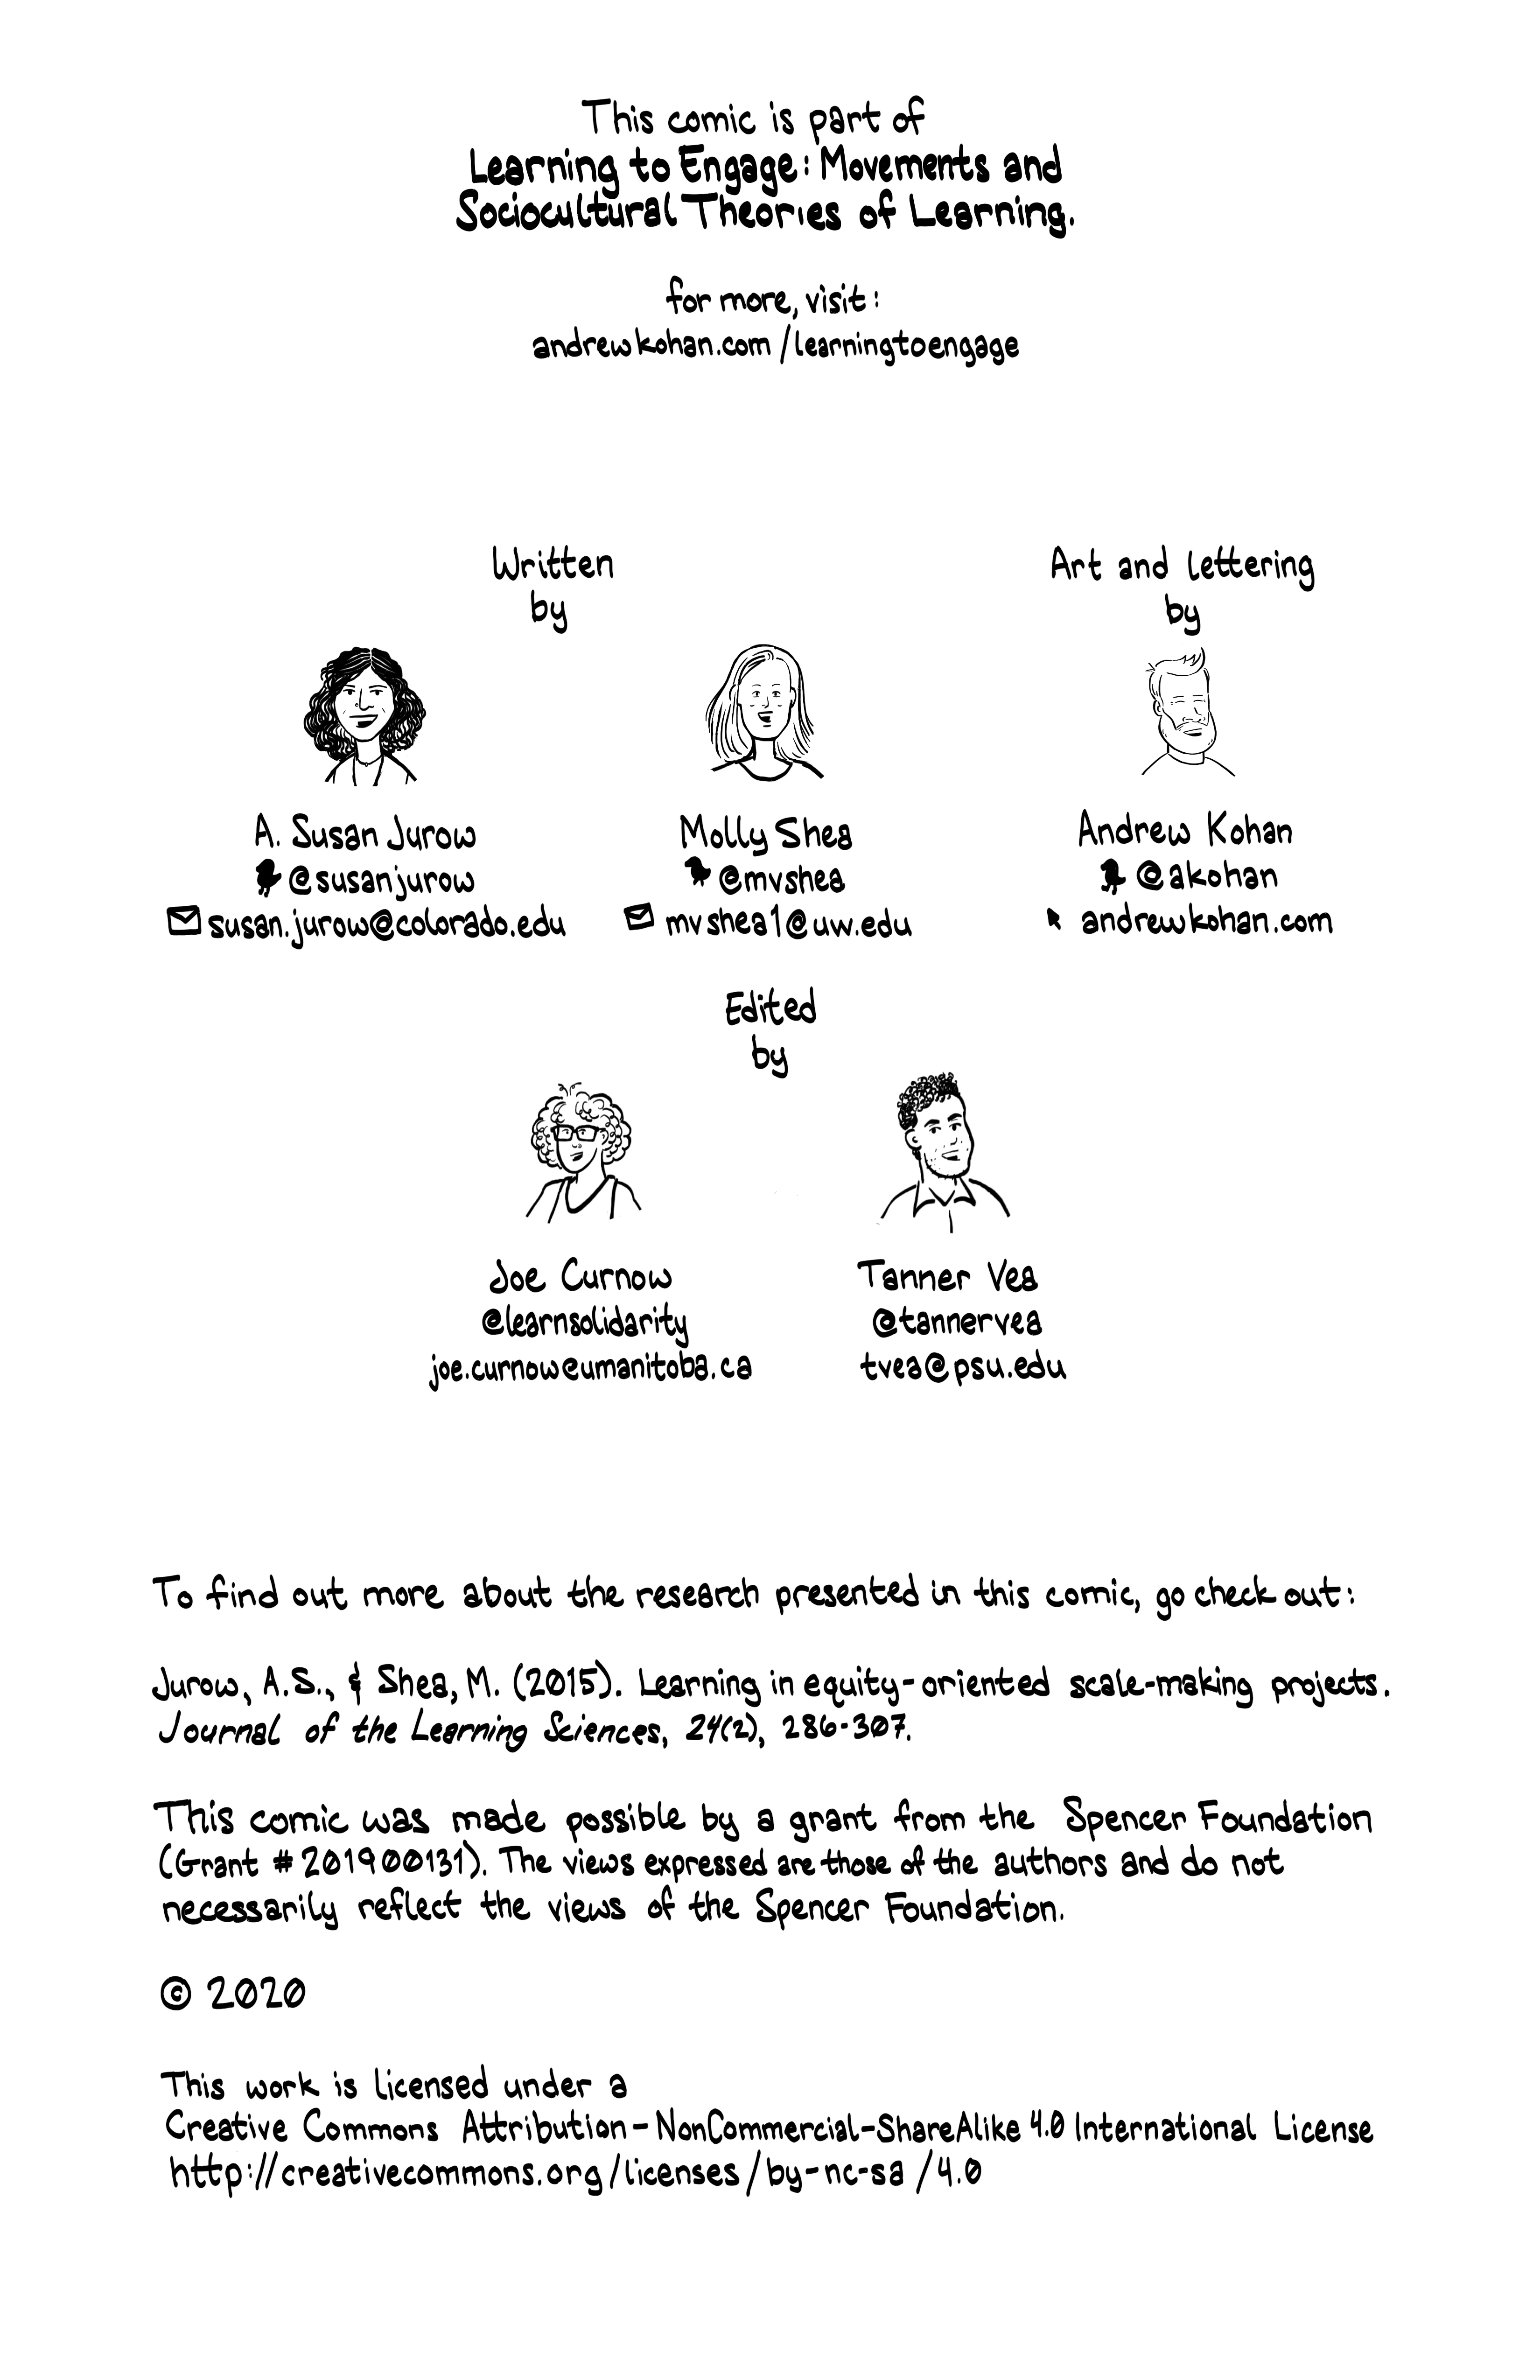 This comic is part of
Learning to Engage: Movements and
Sociocultural Theories of Learning.
for more, visit:
andrewkohan.com/learningtoengage
Written
by
A. Susan Jurow
@susanjurow
susan.jurow@colorado.edu
Molly Shea
@mvshea
mvshea1@uw.edu
Art and lettering
by
Andrew Kohan
@akohan
andrewkohan.com
Edited
by
Joe Curnow
@learnsolidarity
joe.curnow@umanitoba.ca
Tanner Vea
@tannervea
tvea@psu.edu
To find out more about the research presented in this comic, go check out:
Jurow, A.S., & Shea, M. (2015). Learning in equity-oriented scale-making projects.
Journal of the Learning Sciences, 24(2), 286-307.
This comic was made possible by a grant from the Spencer Foundation
(Grant #201900131). The views expressed are those of the authors and do not
necessarily reflect the views of the Spencer Foundation.
© 2020
This work is licensed under a
Creative Commons Attribution-NonCommercial-ShareAlike 4.0 International License
http://creativecommons.org/licenses/by-nc-sa/4.0